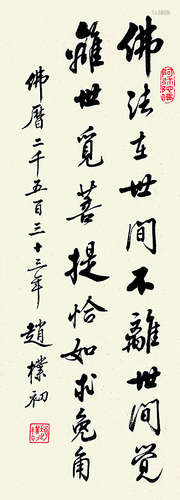 佛法在世間不離世間覺
離世覓菩提恰如求兔角
佛曆二千五百三十三年 趙樸初